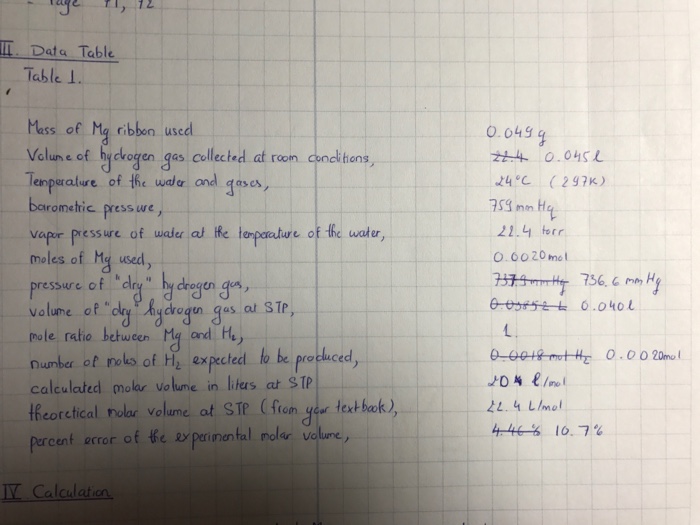 Page 11, 12
III. Data Table
Table 1.
Mass of Mg ribbon used 0.049g
Volume of hydrogen gas collected at room conditions, 22.4 0.045l
Temperature of the water and gases, 24°C (297K)
barometric pressure, 759 mm Hg
vapor pressure of water at the temperature of the water, 22.4 torr
moles of Mg used, 0.0020mol
pressure of "dry" hydrogen gas, 737.9 mm Hg 736.6 mm Hg
volume of "dry" hydrogen gas at STP, 0.03852 L 0.040l
mole ratio between Mg and H2, 1
number of moles of H2 expected to be produced, 0.0018 mol H2 0.0020mol
calculated molar volume in liters at STP 20 l/mol
theoretical molar volume at STP (from your textbook), 22.4 L/mol
percent error of the experimental molar volume, 4.46% 10.7%
IV Calculation